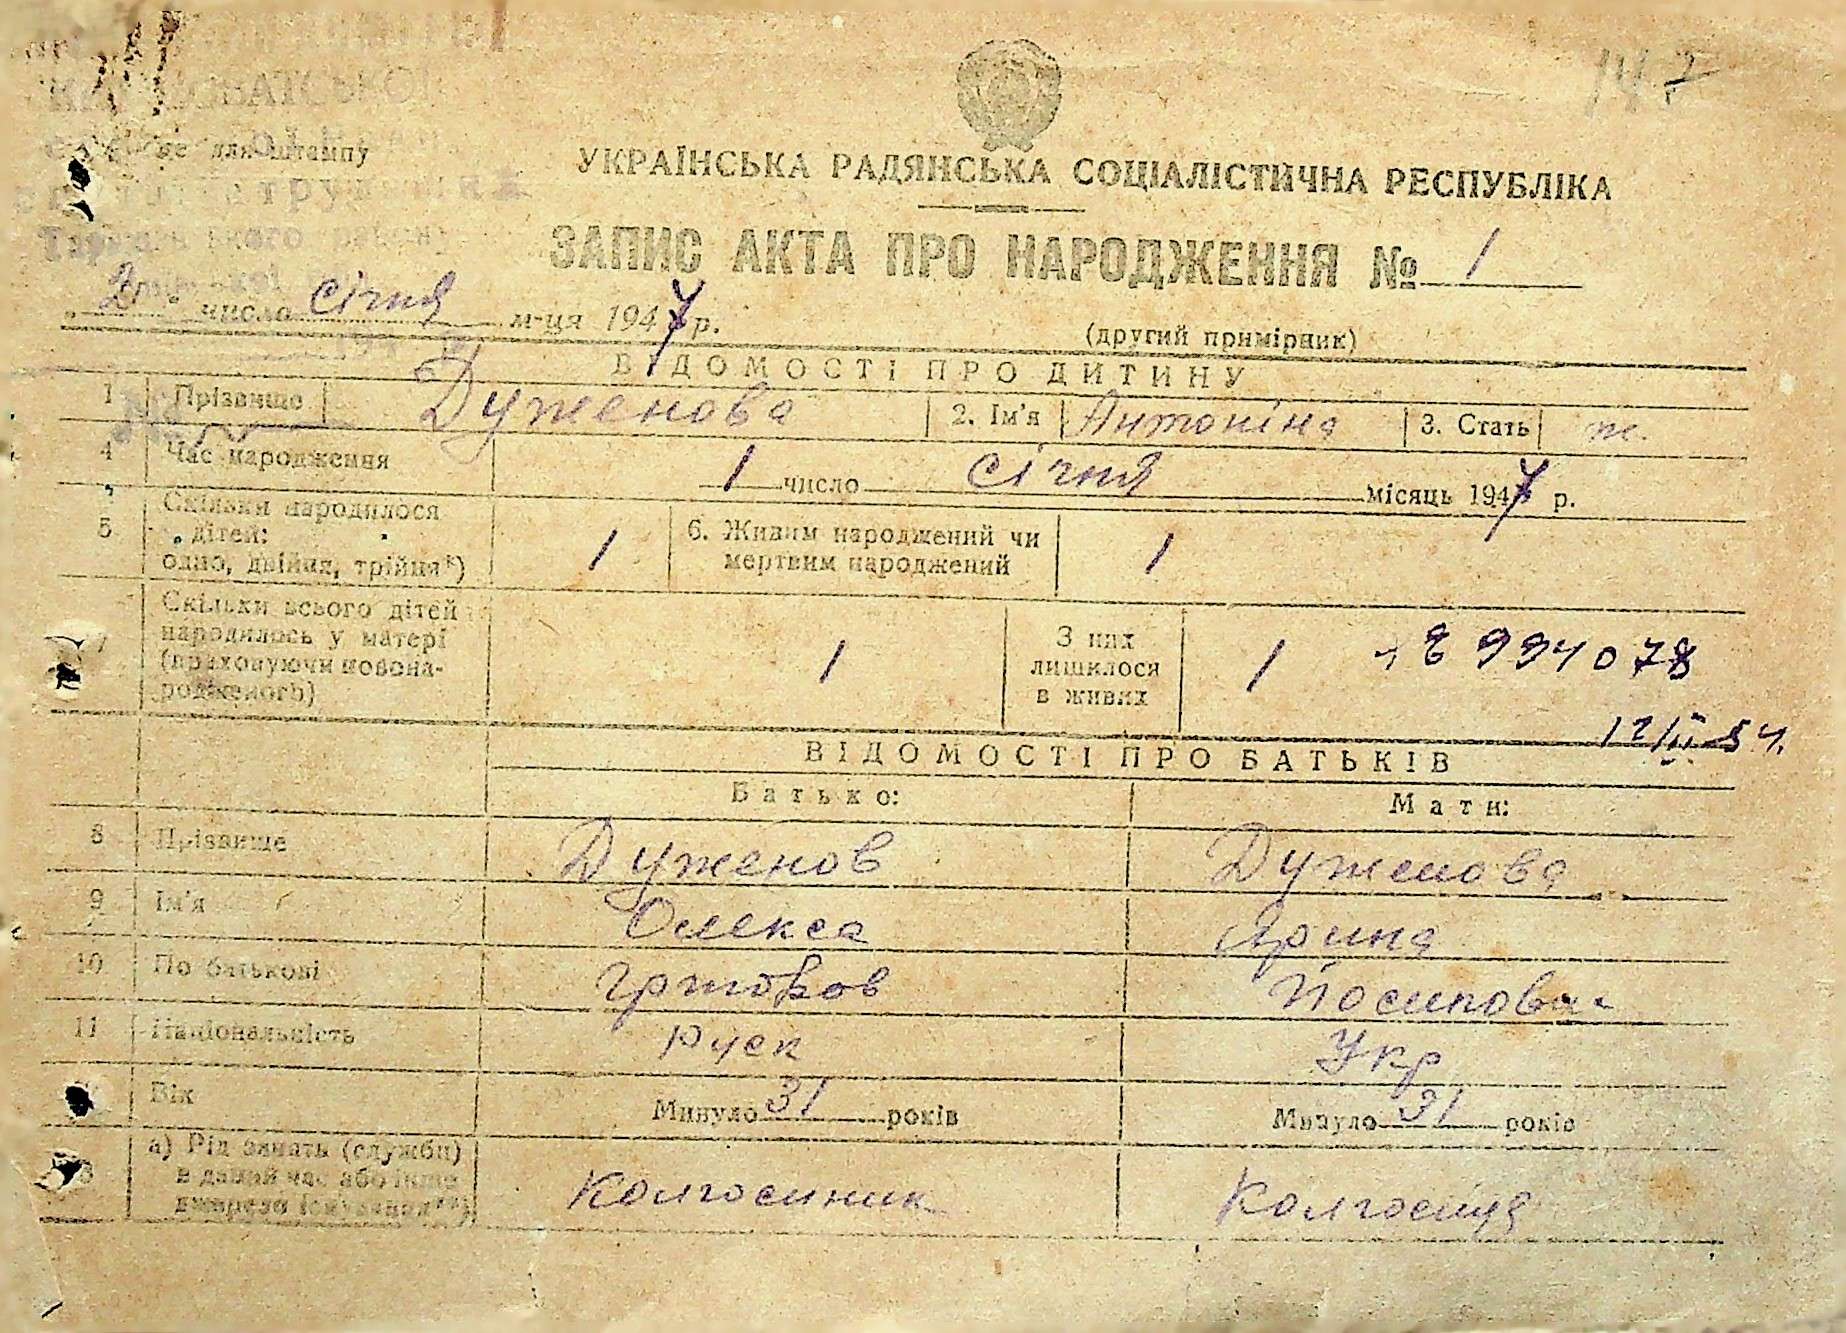 147
Місце для штампу
УКРАЇНСЬКА РАДЯНСЬКА СОЦІАЛІСТИЧНА РЕСПУБЛІКА
ЗАПИС АКТА ПРО НАРОДЖЕННЯ № 1
"2" число січня м-ця 1947 р.
(другий примірник)
ВІДОМОСТІ ПРО ДИТИНУ
1 Прізвище Дуженова 2. Ім'я Антоніна 3. Стать ж.
4 Час народження 1 число січня місяць 1947 р.
5 Скільки народилося дітей: одно, двійня, трійня*) 1 6. Живим народжений чи мертвим народжений 1
7 Скільки всього дітей народилось у матері (враховуючи новонародженого) 1 З них лишилося в живих 1 994078
12/II-54.
ВІДОМОСТІ ПРО БАТЬКІВ
Батько: Мати:
8 Прізвище Дуженов Дуженова
9 Ім'я Олекса Ярина
10 По батькові Йосипов
11 Національність Руск Укр
Вік Минуло 31 років Минуло 31 років
а) Рід занять (служби) в даний час або інше джерело існування**) Колгоспник Колгоспця